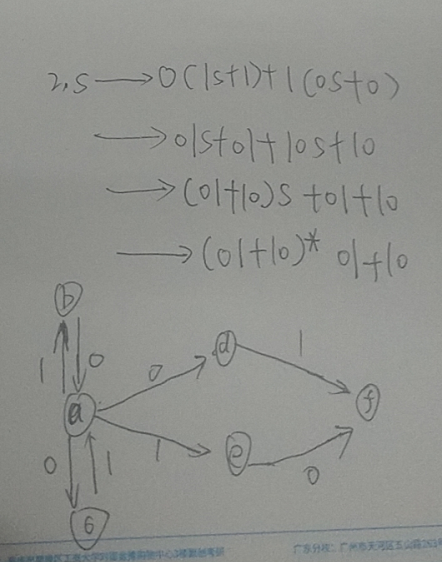 2,S → 0(1S+1)+1(0S+0)
→ 01S+01+10S+10
→ (01+10)S+01+10
→ (01+10)* 01+10
b
1 0
d
1
0
a
f
0 1
1
e
0
6
广东分校:广州市天河区五山路